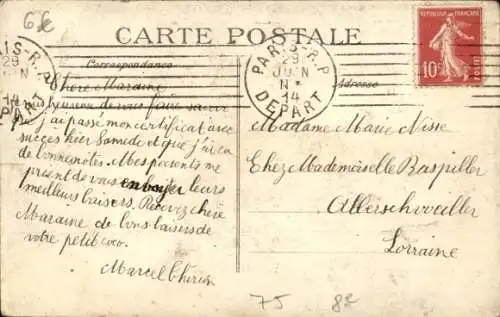 6fc
CARTE POSTALE
REPUBLIQUE FRANÇAISE
10c
POSTES
PARIS-R.P
29
JUIN
14
DEPART
Correspondance
Adresse
Chère Maraine
je suis heureuse de vous faire savoir
j'ai passé mon certificat avec
succès hier Samede et que j'ai eu
de bonne notes. Mes parents me
prient de vous envoyer leurs
meilleurs baisers. Recevez chère
Maraine de bons baisers de
votre petit coco.
Marcel Thirion
Madame Marie Nisse
Chez Mademoiselle Baspiller
Allerschweiller
Lorraine
75
82